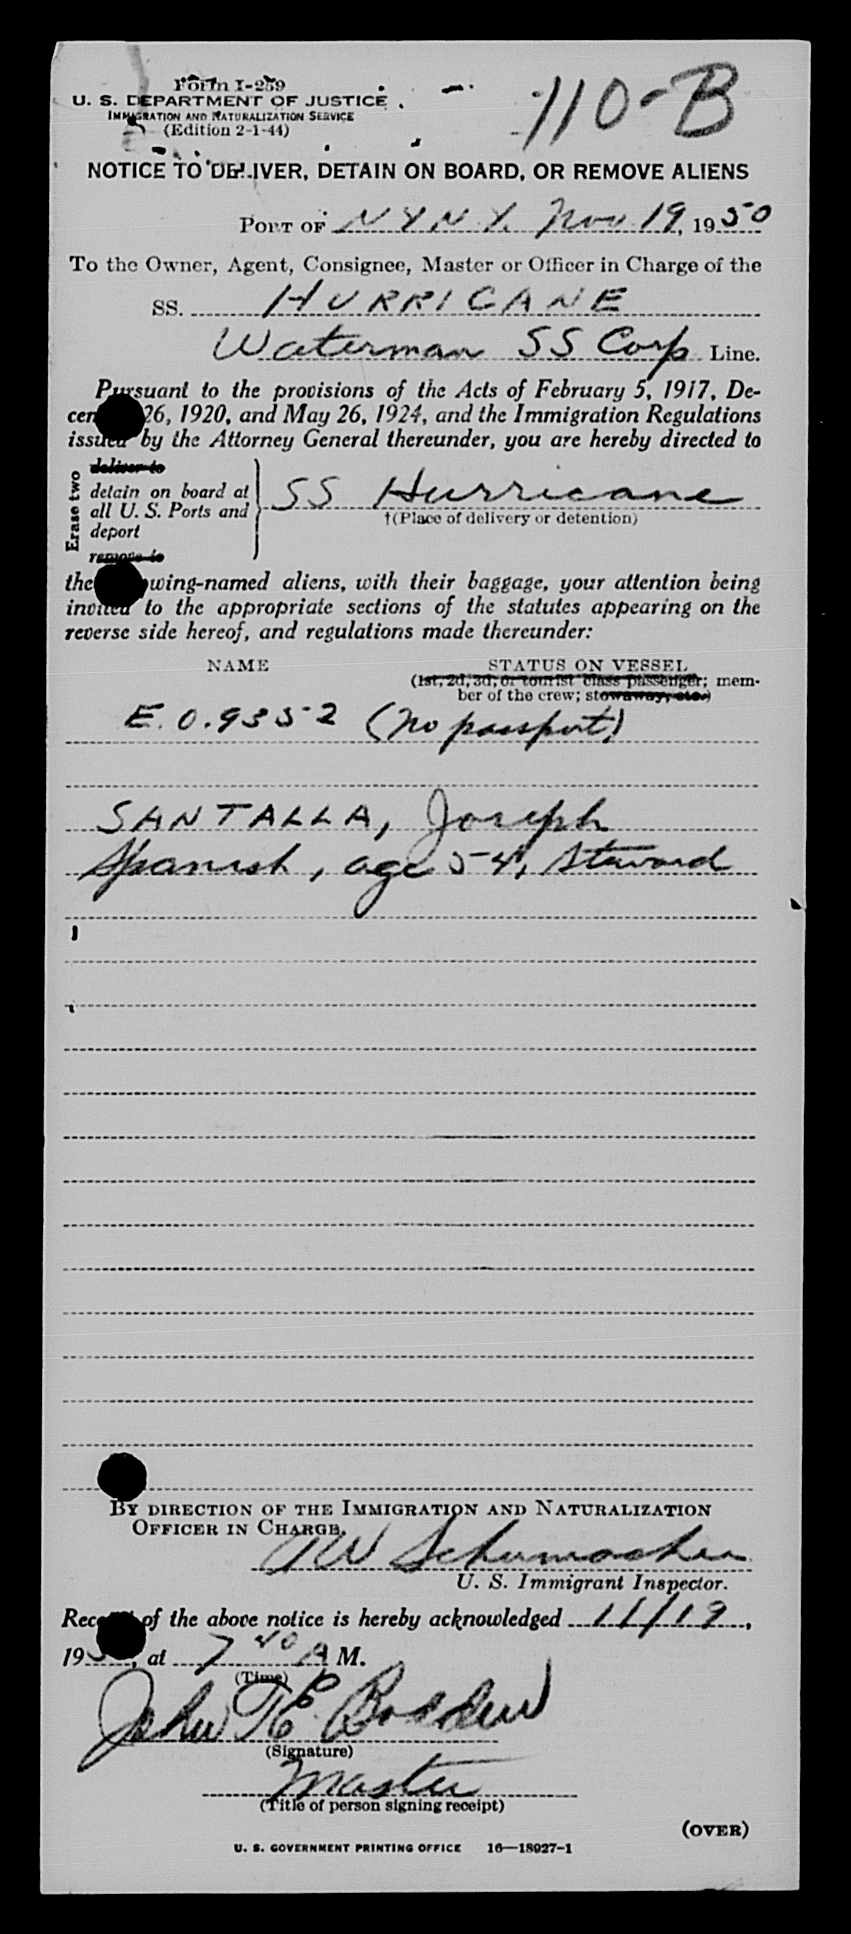 Form I-259
U. S. DEPARTMENT OF JUSTICE
IMMIGRATION AND NATURALIZATION SERVICE
(Edition 2-1-44)
110-B
NOTICE TO DELIVER, DETAIN ON BOARD, OR REMOVE ALIENS
PORT OF N Y N Y. Nov 19, 1950
To the Owner, Agent, Consignee, Master or Officer in Charge of the
SS. HURRICANE
Waterman SS Corp Line.
Pursuant to the provisions of the Acts of February 5, 1917, De-
cem 26, 1920, and May 26, 1924, and the Immigration Regulations
issued by the Attorney General thereunder, you are hereby directed to
Erase two
deliver to
detain on board at
all U. S. Ports and
deport
remove to
SS Hurricane
†(Place of delivery or detention)
the wing-named aliens, with their baggage, your attention being
invited to the appropriate sections of the statutes appearing on the
reverse side hereof, and regulations made thereunder:
NAME STATUS ON VESSEL
(1st, 2d, 3d, or tourist class passenger; mem-
ber of the crew; stowaway, etc.)
E.O. 9352 (No passport)
SANTALLA, Joseph
Spanish, age 54, Steward
BY DIRECTION OF THE IMMIGRATION AND NATURALIZATION
OFFICER IN CHARGE.
Schumacher
U. S. Immigrant Inspector.
Rec of the above notice is hereby acknowledged 11/19,
195, at 7 40 A M.
(Time)
John E. Bodden
(Signature)
Master
(Title of person signing receipt)
(OVER)
U. S. GOVERNMENT PRINTING OFFICE 16—18927-1